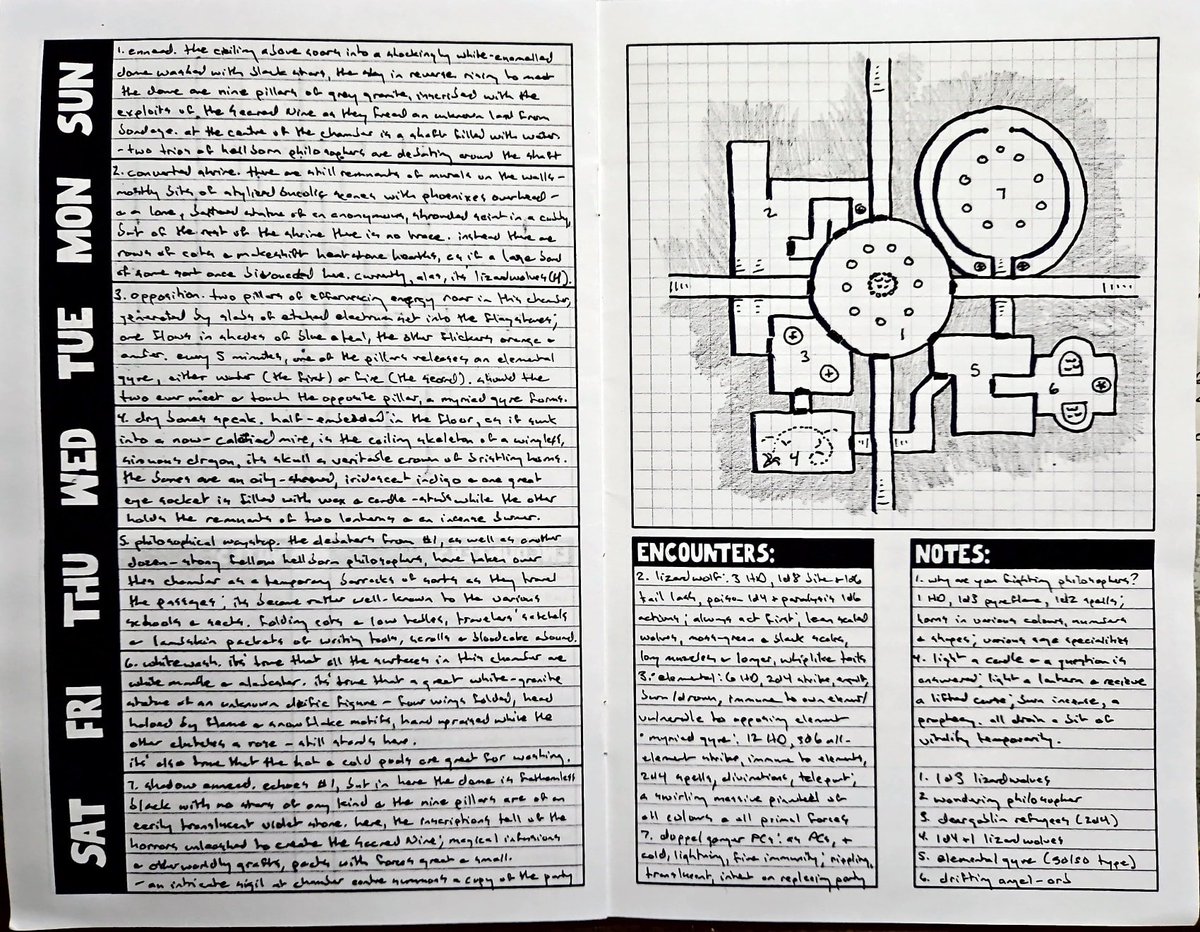 SUN
1. ennead. the ceiling above soars into a shockingly white-enamelled
dome washed with black stars, the sky in reverse. rising to meet
the dome are nine pillars of grey granite, inscribed with the
exploits of the Sacred Nine as they freed an unknown land from
bondage. at the centre of the chamber is a shaft filled with water
- two trios of hellborn philosophers are debating around the shaft
MON
2. converted shrine. there are still remnants of murals on the walls -
mostly bits of stylized bucolic scenes with phoenixes overhead -
& a lone, battered statue of an anonymous, shrouded saint in a cubby,
but of the rest of the shrine there is no trace. instead there are
rows of cots & makeshift hearthstone hearths, as if a large band
of some sort once bivouacked here. currently, alas, its lizardwolves (4).
TUE
3. opposition. two pillars of effervescing energy roar in this chamber,
generated by slabs of etched electrum set into the flagstones;
one flows in shades of blue & teal, the other flickers orange &
amber. every 5 minutes, one of the pillars releases an elemental
gyre, either water (the first) or fire (the second). should the
two ever meet or touch the opposite pillar, a myriad gyre forms.
WED
4. dry bones speak. half-embedded in the floor, as if sunk
into a now-calcified mire, is the coiling skeleton of a wingless,
sinuous dragon, its skull a veritable crown of bristling horns.
the bones are an oily-sheened, iridescent indigo & one great
eye socket is filled with wax & candle-stubs while the other
holds the remnants of two lanterns & an incense burner.
THU
5. philosophical waystop. the debaters from #1, as well as another
dozen-strong fellow hellborn philosophers, have taken over
this chamber as a temporary barracks of sorts as they travel
the passages; its become rather well-known to the various
schools & sects. folding cots & low tables, travelers' satchels
& lambskin packets of writing tools, scrolls & bloodcake abound.
FRI
6. whitewash. its true that all the surfaces in this chamber are
white marble & alabaster. its true that a great white-granite
statue of an unknown deific figure - four wings folded, head
haloed by flame & snowflake motifs, hand upraised while the
other clutches a rose - still stands here.
its also true that the hot & cold pools are great for washing.
SAT
7. shadow ennead. echoes #1, but in here the dome is fathomless
black with no stars of any kind & the nine pillars are of an
eerily translucent violet stone. here, the inscriptions tell of the
horrors unleashed to create the Sacred Nine; magical infusions
& otherworldly grafts, pacts with forces great & small.
- an intricate sigil at chamber centre summons a copy of the party
2
7
1
3
5
6
4
ENCOUNTERS:
2. lizardwolf: 3 HD, 1d8 bite + 1d6
tail lash, poison 1d4 + paralysis 1d6
actions; always act first; lean scaled
wolves, moss-green & black scales,
long muzzles & longer, whiplike tails
3. elemental: 6 HD, 2d4 strike, engulf,
burn/drown, immune to own element/
vulnerable to opposing element
• myriad gyre: 12 HD, 3d6 all-
element strike, immune to elements,
2d4 spells, divinations, teleport;
a swirling massive pinwheel of
all colours & all primal forces
7. doppelganger PCs: as PCs, +
cold, lightning, fire immunity; rippling,
translucent, intent on replacing party
NOTES:
1. why are you fighting philosophers?
1 HD, 1d3 pyreflame, 1d2 spells;
horns in various colours, numbers
& shapes; various sage specialities
4. light a candle & a question is
answered; light a lantern & recieve
a lifted curse; burn incense, a
prophecy. all drain a bit of
vitality temporarily.
1. 1d3 lizardwolves
2. wandering philosopher
3. deargoblin refugees (2d4)
4. 1d4+1 lizardwolves
5. elemental gyre (50/50 type)
6. drifting angel-orb